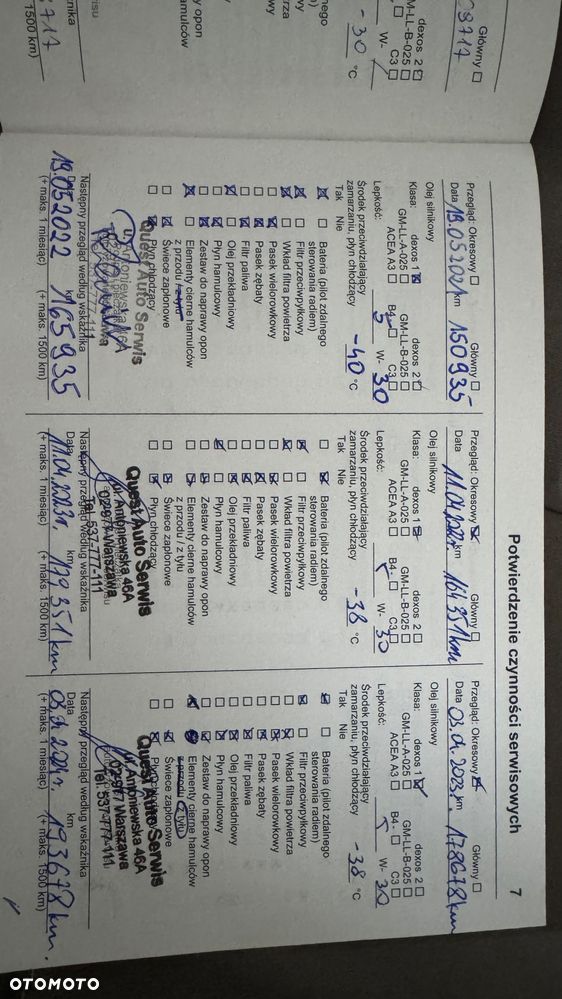 Potwierdzenie czynności serwisowych
7
Główny
C8717
dexos 2
GM-LL-B-025
C3
W-
-30 °C
1500 km)
Przegląd: Okresowy Główny
Data 19.05.2021 km 150935
Olej silnikowy
Klasa: dexos 1 dexos 2
GM-LL-A-025 GM-LL-B-025
ACEA A3 B4- C3
Lepkość: 5 W- 30
Środek przeciwdziałający
zamarzaniu, płyn chłodzący -40 °C
Tak Nie
Bateria (pilot zdalnego
sterowania radiem)
Filtr przeciwpyłkowy
Wkład filtra powietrza
Pasek wielorowkowy
Pasek zębaty
Filtr paliwa
Olej przekładniowy
Płyn hamulcowy
Zestaw do naprawy opon
Elementy cierne hamulców
z przodu / z tyłu
Świece zapłonowe
Płyn chłodzący
Quest Auto Serwis
Następny przegląd według wskaźnika
Data 19.05.2022 km 165935
(+ maks. 1 miesiąc) (+ maks. 1500 km)
Przegląd: Okresowy Główny
Data km 164351 km
Olej silnikowy
Klasa: dexos 1 dexos 2
GM-LL-A-025 GM-LL-B-025
ACEA A3 B4- C3
Lepkość: 5 W- 30
Środek przeciwdziałający
zamarzaniu, płyn chłodzący -38 °C
Tak Nie
Bateria (pilot zdalnego
sterowania radiem)
Filtr przeciwpyłkowy
Wkład filtra powietrza
Pasek wielorowkowy
Pasek zębaty
Filtr paliwa
Olej przekładniowy
Płyn hamulcowy
Zestaw do naprawy opon
Elementy cierne hamulców
z przodu / z tyłu
Świece zapłonowe
Płyn chłodzący
Quest Auto Serwis
ul. Antoniewska 46A
02-977 Warszawa
Tel. 537-777-111
Następny przegląd według wskaźnika
Data 11.04.2023r. km 179351 km
(+ maks. 1 miesiąc) (+ maks. 1500 km)
Przegląd: Okresowy Główny
Data 03.01.2023 km 178678 km
Olej silnikowy
Klasa: dexos 1 dexos 2
GM-LL-A-025 GM-LL-B-025
ACEA A3 B4- C3
Lepkość: 5 W- 30
Środek przeciwdziałający
zamarzaniu, płyn chłodzący -38 °C
Tak Nie
Bateria (pilot zdalnego
sterowania radiem)
Filtr przeciwpyłkowy
Wkład filtra powietrza
Pasek wielorowkowy
Pasek zębaty
Filtr paliwa
Olej przekładniowy
Płyn hamulcowy
Zestaw do naprawy opon
Elementy cierne hamulców
z przodu / z tyłu
Świece zapłonowe
Płyn chłodzący
Quest Auto Serwis
ul. Antoniewska 46A
02-977 Warszawa
Tel. 537-777-111
Następny przegląd według wskaźnika
Data 03.01.2024r. km 193678 km.
(+ maks. 1 miesiąc) (+ maks. 1500 km)
OTOMOTO